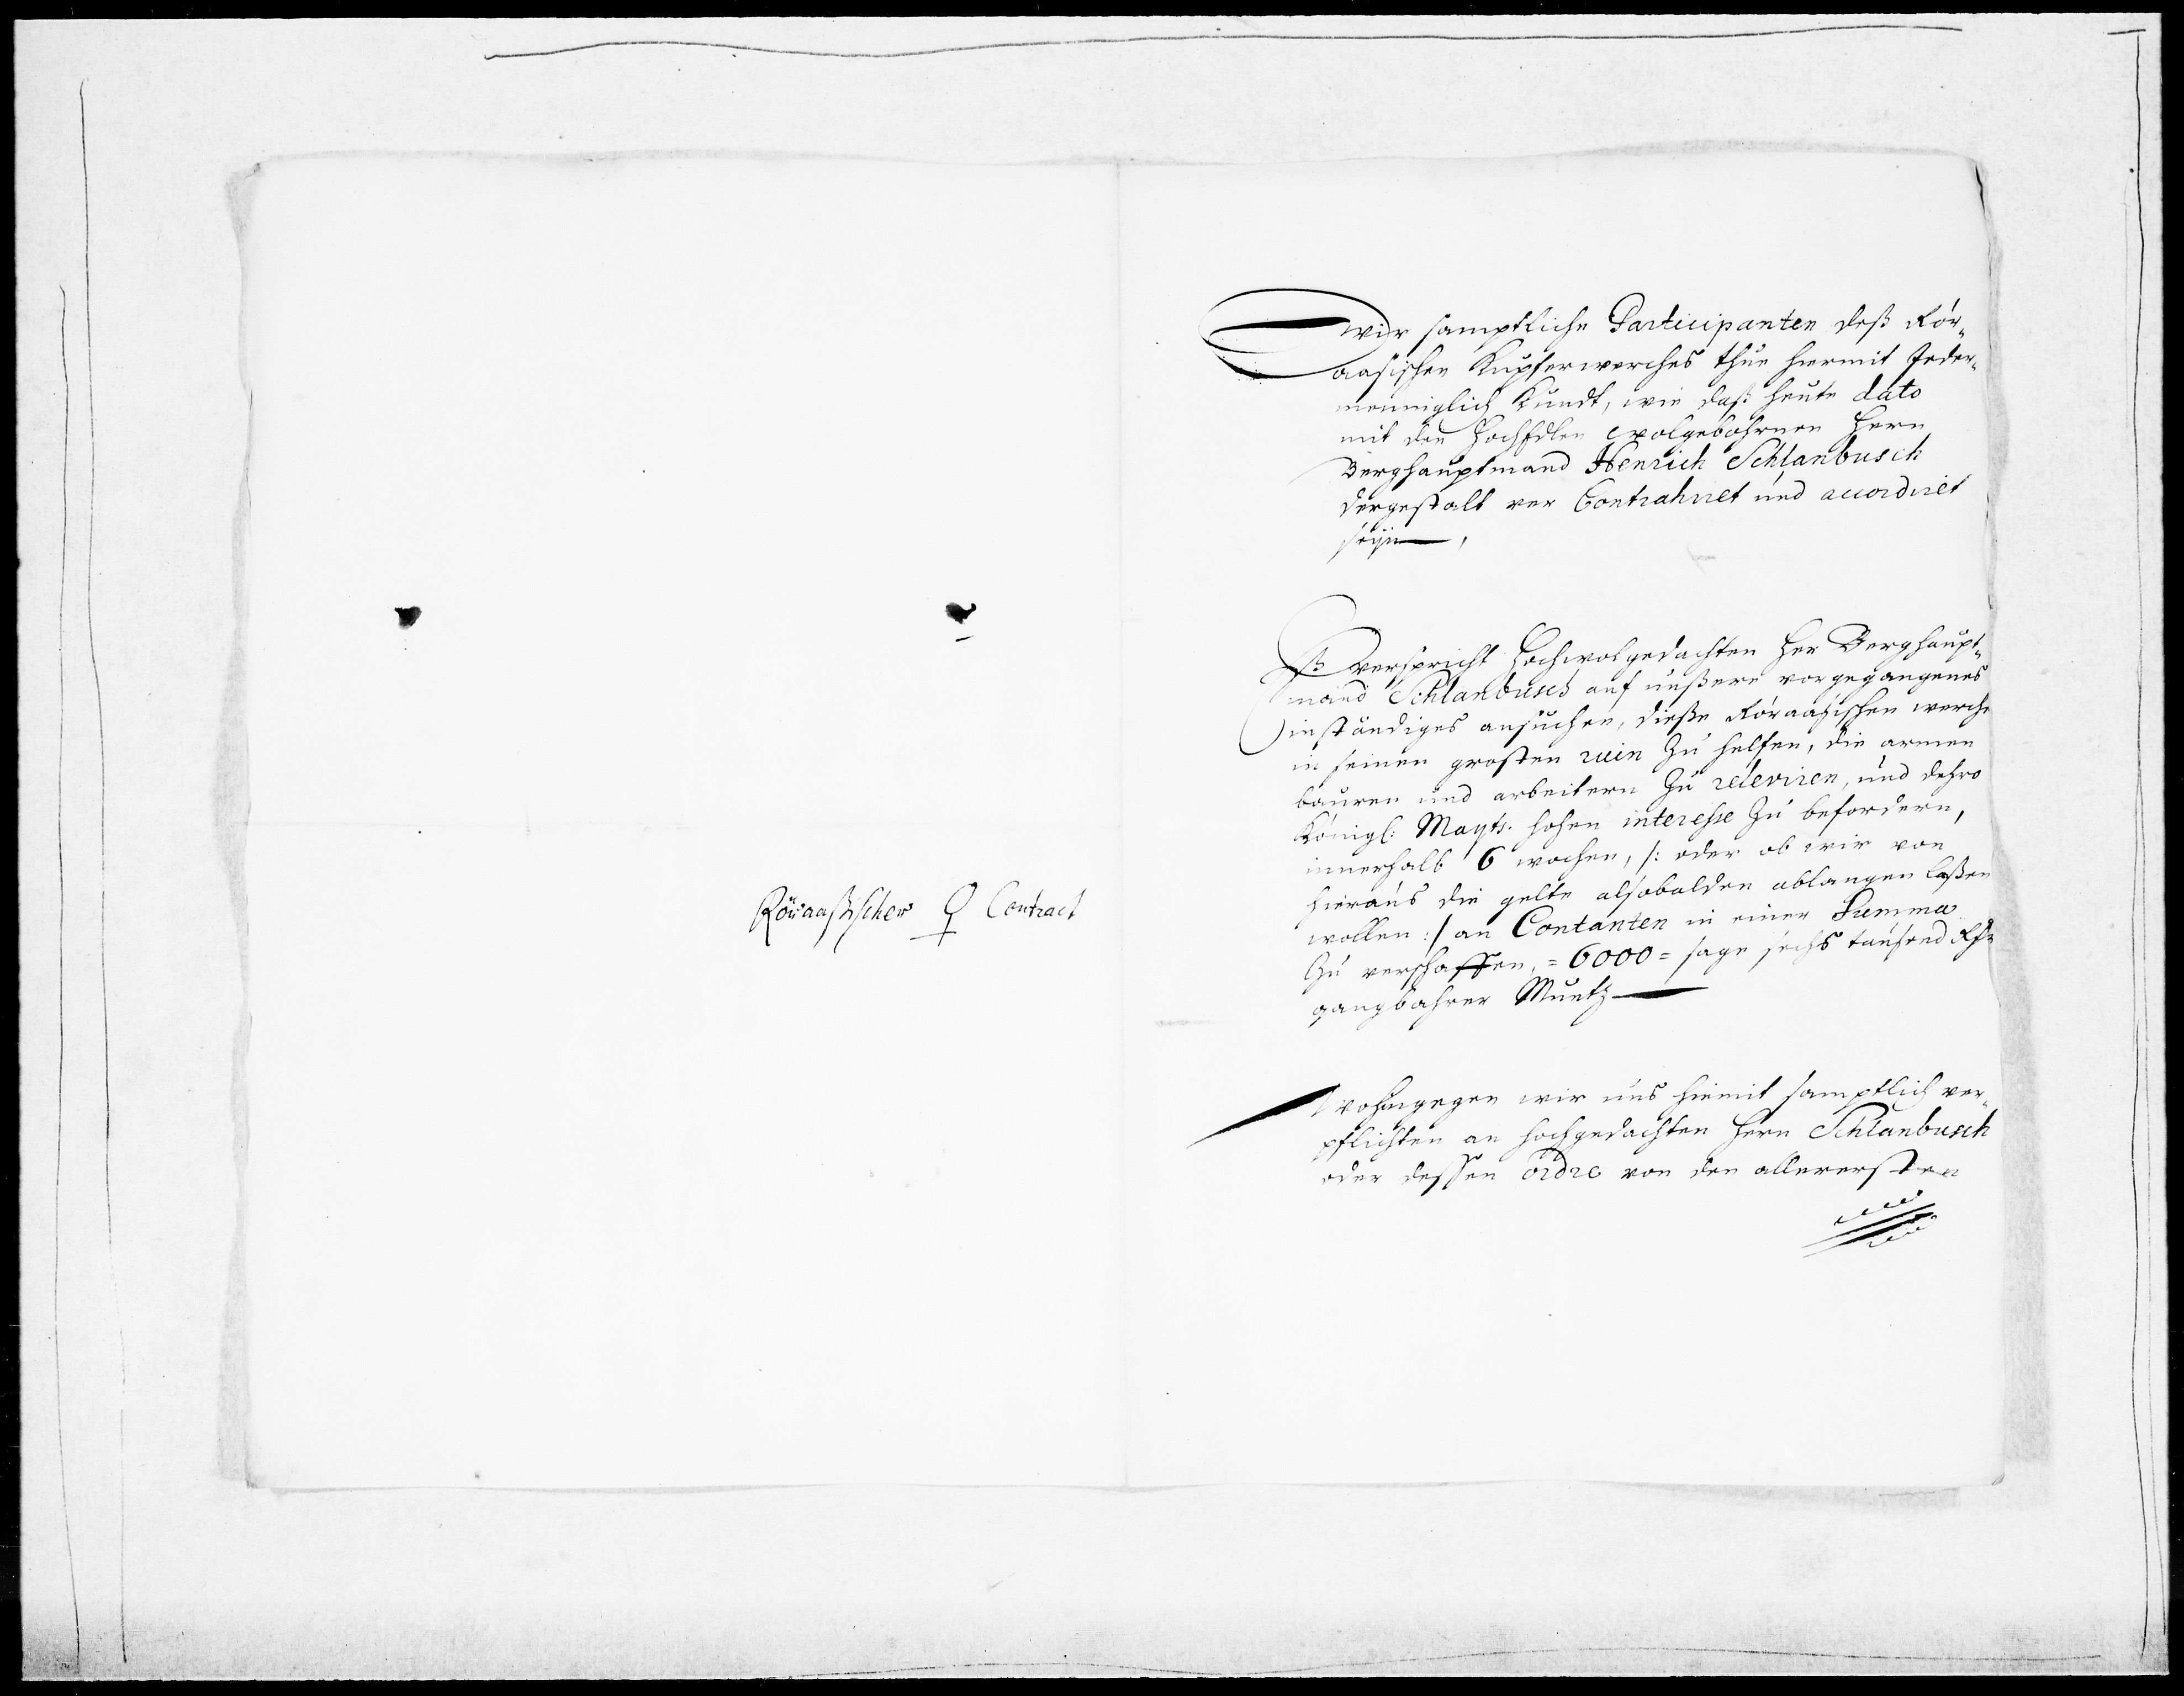 Röraaßischer ♀ Contract
wir samptliche Participanten deß Rör„
aasischen Kupferwerches thue hiermit Jeder„
menniglich Kundt, wie daß heute dato
mit den HochEdlen wolgebohrnen Herrn
Berghauptmand Henrich Schlanbusch
dergestalt ver Contrahiret und accordiret
seÿn,
Eß verspricht Hochwolgedachten Her Berghaupt„
mand Schlanbusch auf unßere vorgegangenes
inständiges ansuchen, dieße Röraasischen werche
in seinen grosten ruin Zu helfen, die armen
bauren und arbeitern Zu releviren, und dehro
Königl: Mayts. hohen interesse Zu befordern,
innerhalb 6 wochen, /: oder ob wir von
hieraus die gelte alsobalden ablangen laßen
wollen :/ an Contanten in einer Summa
Zu verschaffen, = 6000 = sage sechs tausend Rdr
gangbahrer Muntz
Wohingegen wir uns hiemit samptlich ver„
pflichten an hochgedachten Herrn Schlanbusch
oder dessen ordre von den allerersten